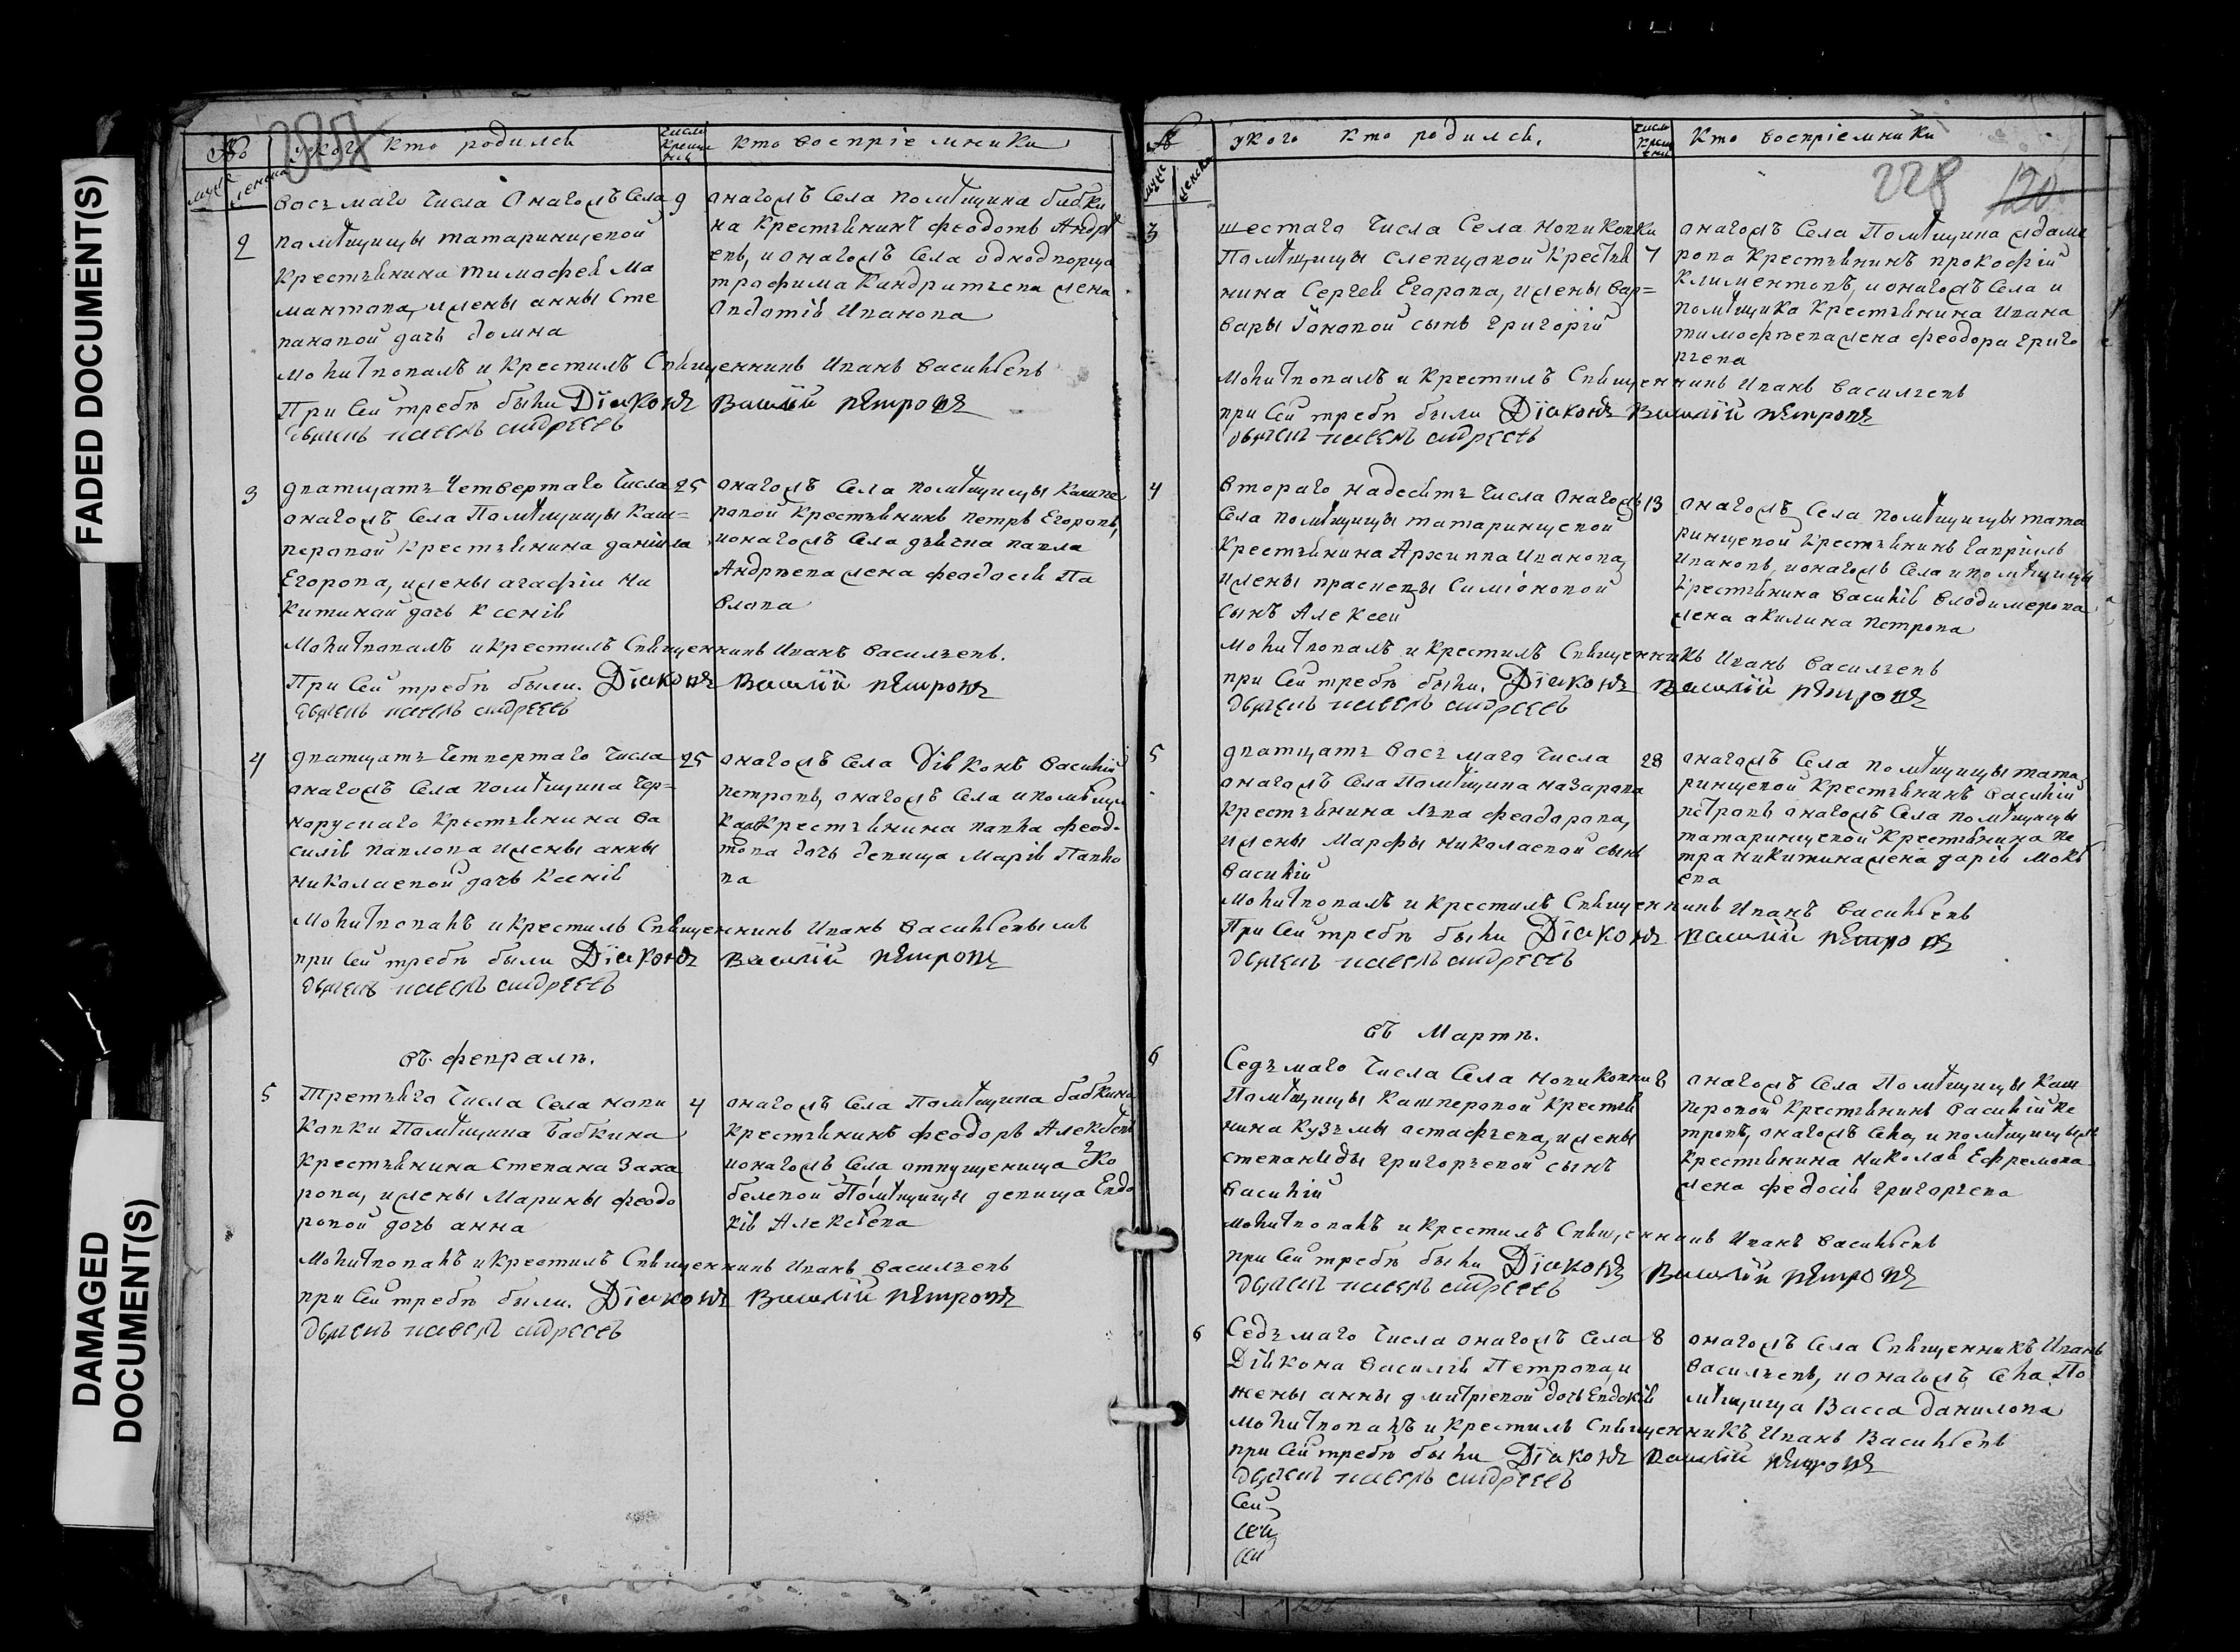 FADED DOCUMENT(S)
DAMAGED DOCUMENT(S)
№ у кого кто родился числа крещения кто восприемники
муж женска
2 восмаго числа онагожъ села 9
помѣщицы татаринцевой
крестьянина тимофея ма
мантова, и жены анны сте
пановой дочь домна
онагожъ села помѣщика бабки
на крестьянинъ феодотъ Андрѣ
евъ, и онагожъ села однодворца
трофима Кандратьева жена
Овдотія Иванова
молитвовалъ и крестилъ Священникъ Иванъ Васильевъ
При сей требѣ были Дїаконъ Василїй пѣтровъ
дьячекъ павелъ андреевъ
3 дватцать четвертаго числа 25
онагожъ села Помѣщицы Каш=
перовой крестьянина данійла
Егорова, и жены агафіи Ни
китиной дочь Ксенія
онагожъ села помѣщицы Кашпе
ровой крестьянинъ петръ Егоровъ,
и онагожъ села дьячка павла
Андрѣева жена феодосія Па
влова
Молитвовалъ и крестилъ Священникъ Иванъ Васильевъ.
При сей требѣ были. Дїаконъ Василїй пѣтровъ
дьячекъ павелъ андреевъ
4 дватцать четвертаго числа 25
онагожъ села помѣщика Чер=
норуснаго крестьянина Ва
силія павлова и жены анны
николаевой дочь Ксенія
онагожъ села Діяконъ Василій
петровъ, онагожъ села и помѣщи
ка крестьянина павла феодо
това дочь девица Марія Павло
ва
Молитвовалъ и крестилъ Священникъ Иванъ Васильевымъ
при сей требѣ были Дїаконъ Василїй пѣтровъ
дьячекъ павелъ андреевъ
въ февралѣ.
5 Третьяго числа села нови 4
ковки Помѣщика Бабкина
крестьянина степана Заха
рова, и жены Марины феодо
ровой дочь анна
онагожъ села Помѣщика бабкина
крестьянинъ феодоръ Алексѣевъ
и онагожъ села отпущеница Ко
белевой Помѣщицы девица Евдо
кія Алексѣева
Молитвовалъ и крестилъ Священникъ Иванъ Васильевъ
при сей требѣ были. Дїаконъ Василїй пѣтровъ
дьячекъ павелъ андреевъ
№ у кого кто родился. числа крещения Кто восприемники
муж женска
228 120
3 шестаго числа села новиковки 7
Помѣщицы слепцовой крестья
нина Сергея Егорова, и жены вар=
вары Іоновой сынъ григорій
онагожъ села Помѣщика Адаме
рова крестьянинъ прокофій
Климентовъ, и онагожъ села и
помѣщика крестьянина Ивана
тимофѣева жена феодора григо
рьева
Молитвовалъ и крестилъ Священникъ Иванъ Васильевъ
при сей требѣ были Дїаконъ Василїй пѣтровъ
дьячекъ павелъ андреевъ
4 втораго надесять числа онагожъ 13
села помѣщицы татаринцевой
крестьянина Архиппа Иванова,
и жены прасковьи Симіоновой
сынъ Алексей
онагожъ села помѣщицы тата
ринцевой крестьянинъ Гавріилъ
Ивановъ, и онагожъ села и помѣщицы
крестьянина Василія Владимерова
жена акилина петрова
Молитвовалъ и крестилъ Священникъ Иванъ Васильевъ
при сей требѣ были. Дїаконъ Василїй пѣтровъ
дьячекъ павелъ андреевъ
5 дватцать восмаго числа 28
онагожъ села Помѣщика назарова
крестьянина льва феодорова,
и жены Марфы николаевой сынъ
Василій
онагожъ села помѣщицы тата
ринцевой крестьянинъ Василій
петровъ онагожъ села помѣщицы
татаринцевой крестьянина пе
тра никитина жена дарія Мокѣ
ева
Молитвовалъ и крестилъ Священникъ Иванъ Васильевъ
При сей требѣ были Дїаконъ Василїй пѣтровъ
дьячекъ павелъ андреевъ
въ Мартѣ.
6 Седьмаго числа села новиковки 8
Помѣщицы Кашперовой крестья
нина кузьмы астафьева, и жены
степаниды григорьевой сынъ
Василій
онагожъ села Помѣщицы Каш
перовой крестьянинъ Василій пе
тровъ, онагожъ села, и помѣщицы
крестьянина николая Ефремова
жена федосія григорьева
Молитвовалъ и крестилъ Священникъ Иванъ Васильевъ
при сей требѣ были Дїаконъ Василїй пѣтровъ
дьячекъ павелъ андреевъ
6 Седьмаго числа онагожъ села 8
Діякона Василія Петрова, и
жены анны дмитріевой дочь Евдокія
онагожъ села Священникъ Иванъ
Васильевъ, и онагожъ села По
мѣщица Васса данилова
Молитвовалъ и крестилъ Священникъ Иванъ Васильевъ
при сей требѣ были Дїаконъ Василїй пѣтровъ
дьячекъ павелъ андреевъ
сей
сей
сей